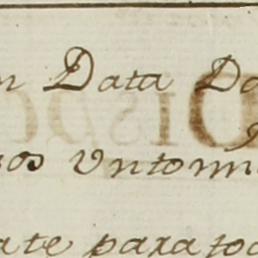 n Data Do
ros Untonn
ate para to